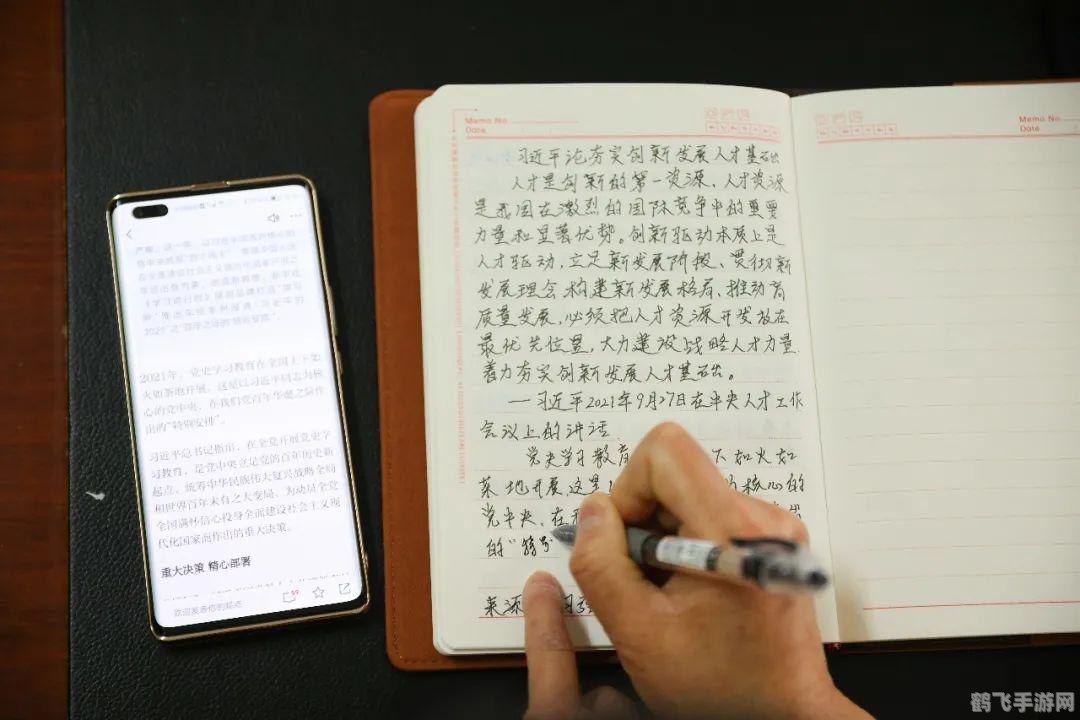 2021年，党史学习教育在全国上下如
火如荼地开展。这是以习近平同志为核
心的党中央，在我们党百年华诞之际作
出的“特别安排”。
习近平总书记指出，在全党开展党史学
习教育，是党中央立足党的百年历史新
起点、统筹中华民族伟大复兴战略全局
和世界百年未有之大变局、为动员全党
全国满怀信心投身全面建设社会主义现
代化国家而作出的重大决策。
重大决策 精心部署
欢迎发表你的观点
Memo No.
Date
习近平论夯实创新发展人才基础
人才是创新的第一资源，人才资源
是我国在激烈的国际竞争中的重要
力量和显著优势。创新驱动本质上是
人才驱动，立足新发展阶段、贯彻新
发展理念 构建新发展格局、推动高
质量发展，必须把人才资源开发放在
最优先位置，大力建设战略人才力量，
着力夯实创新发展人才基础。
—习近平2021年9月27日在中央人才工作
会议上的讲话
党史学习教育 下如火如
荼地开展 这是 核心的
党中央，在
的“特别
来源
Memo No.
Date
鹤飞手游网